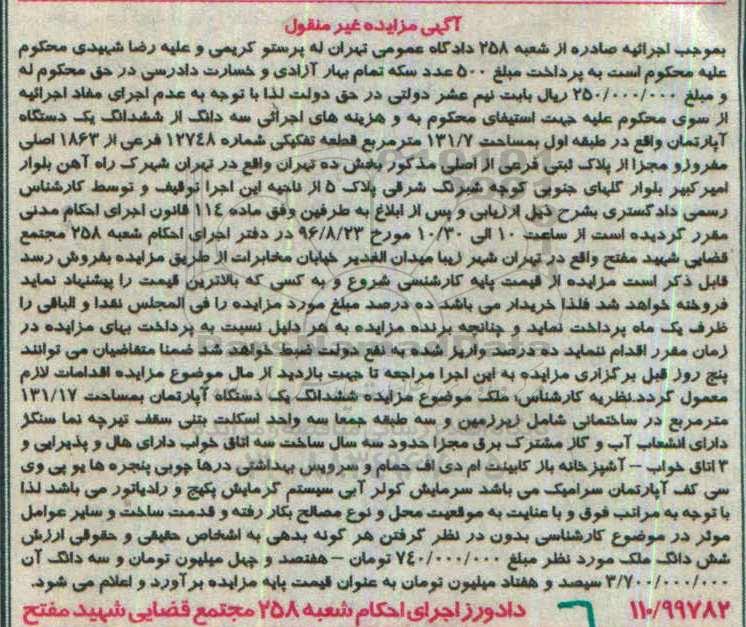 آگهی مزایده غیر منقول
بموجب اجرائیه صادره از شعبه ۲۵۸ دادگاه عمومی تهران له پرستو کریمی و علیه رضا شهیدی محکوم
علیه محکوم است به پرداخت مبلغ ۵۰۰ عدد سکه تمام بهار آزادی و خسارت دادرسی در حق محکوم له
و مبلغ ۲۵۰/۰۰۰/۰۰۰ ریال بابت نیم عشر دولتی در حق دولت لذا با توجه به عدم اجرای مفاد اجرائیه
از سوی محکوم علیه جهت استیفای محکوم به و هزینه های اجرائی سه دانگ از ششدانگ یک دستگاه
آپارتمان واقع در طبقه اول بمساحت ۱۳۱/۷ مترمربع قطعه تفکیکی شماره ۱۲۷۴۸ فرعی از ۱۸۶۳ اصلی
مفروزو مجزا از پلاک ثبتی فرعی از اصلی مذکور بخش ده تهران واقع در تهران شهرک راه آهن بلوار
امیرکبیر بلوار گلهای جنوبی کوچه شبرنگ شرقی پلاک ۵ از ناحیه این اجرا توقیف و توسط کارشناس
رسمی دادگستری بشرح ذیل ارزیابی و پس از ابلاغ به طرفین وفق ماده ۱۱۴ قانون اجرای احکام مدنی
مقرر گردیده است از ساعت ۱۰ الی ۱۰/۳۰ مورخ ۹۶/۸/۲۳ در دفتر اجرای احکام شعبه ۲۵۸ مجتمع
قضایی شهید مفتح واقع در تهران شهر زیبا میدان الغدیر خیابان مخابرات از طریق مزایده بفروش رسد
قابل ذکر است مزایده از قیمت پایه کارشنسی شروع و به کسی که بالاترین قیمت را پیشنهاد نماید
فروخته خواهد شد فلذا خریدار می باشد ده درصد مبلغ مورد مزایده را فی المجلس نقدا و الباقی را
ظرف یک ماه پرداخت نماید و چنانچه برنده مزایده به هر دلیل نسبت به پرداخت بهای مزایده در
زمان مقرر اقدام ننماید ده درصد واریز شده به نفع دولت ضبط خواهد شد ضمنا متقاضیان می توانند
پنج روز قبل برگزاری مزایده به این اجرا مراجعه تا جهت بازدید از مال موضوع مزایده اقدامات لازم
معمول گردد.نظریه کارشناس: ملک موضوع مزایده ششدانگ یک دستگاه آپارتمان بمساحت ۱۳۱/۱۷
مترمربع در ساختمانی شامل زیرزمین و سه طبقه جمعا سه واحد اسکلت بتنی سقف تیرچه نما سنگز
دارای انشعاب آب و گاز مشترک برق مجزا حدود سه سال ساخت سه اتاق خواب دارای هال و پذیرایی و
۳ اتاق خواب - آشپزخانه باز کابینت ام دی اف حمام و سرویس بهداشتی درها چوبی پنجره ها یو پی وی
سی کف آپارتمان سرامیک می باشد سرمایش کولر آبی سیستم گرمایش پکیج و رادیاتور می باشد لذا
با توجه به مراتب فوق و با عنایت به موقعیت محل و نوع مصالح بکار رفته و قدمت ساخت و سایر عوامل
موثر در موضوع کارشناسی بدون در نظر گرفتن هر گونه بدهی به اشخاص حقیقی و حقوقی ارزش
شش دانگ ملک مورد نظر مبلغ ۷۴۰/۰۰۰/۰۰۰ تومان - هفتصد و چهل میلیون تومان و سه دانگ آن
۳/۷۰۰/۰۰۰/۰۰۰ سیصد و هفتاد میلیون تومان به عنوان قیمت پایه مزایده برآورد و اعلام می شود.
۱۱۰/۹۹۷۸۲ دادورز اجرای احکام شعبه ۲۵۸ مجتمع قضایی شهید مفتح